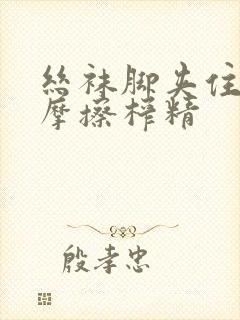 丝袜脚夹住
摩擦榨精
殷孝忠